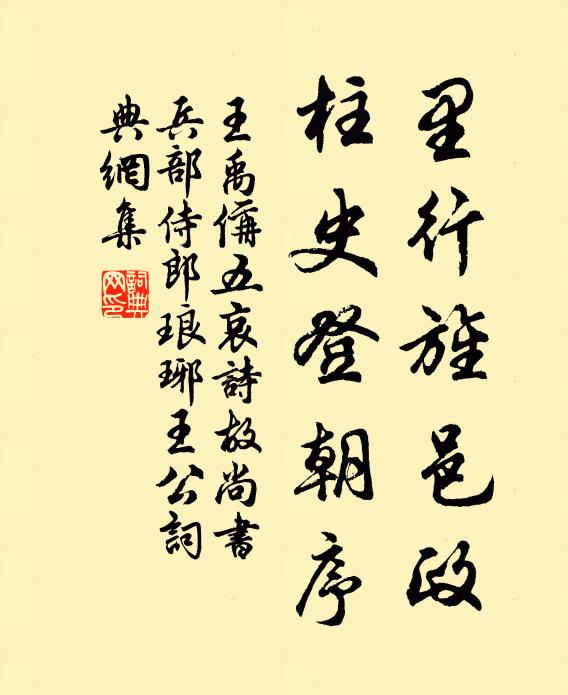 星行旌邑政
柱史登朝序
王禹偁五哀詩故尚書
兵部侍郎琅琊王公詞
典網集
詞典
网印